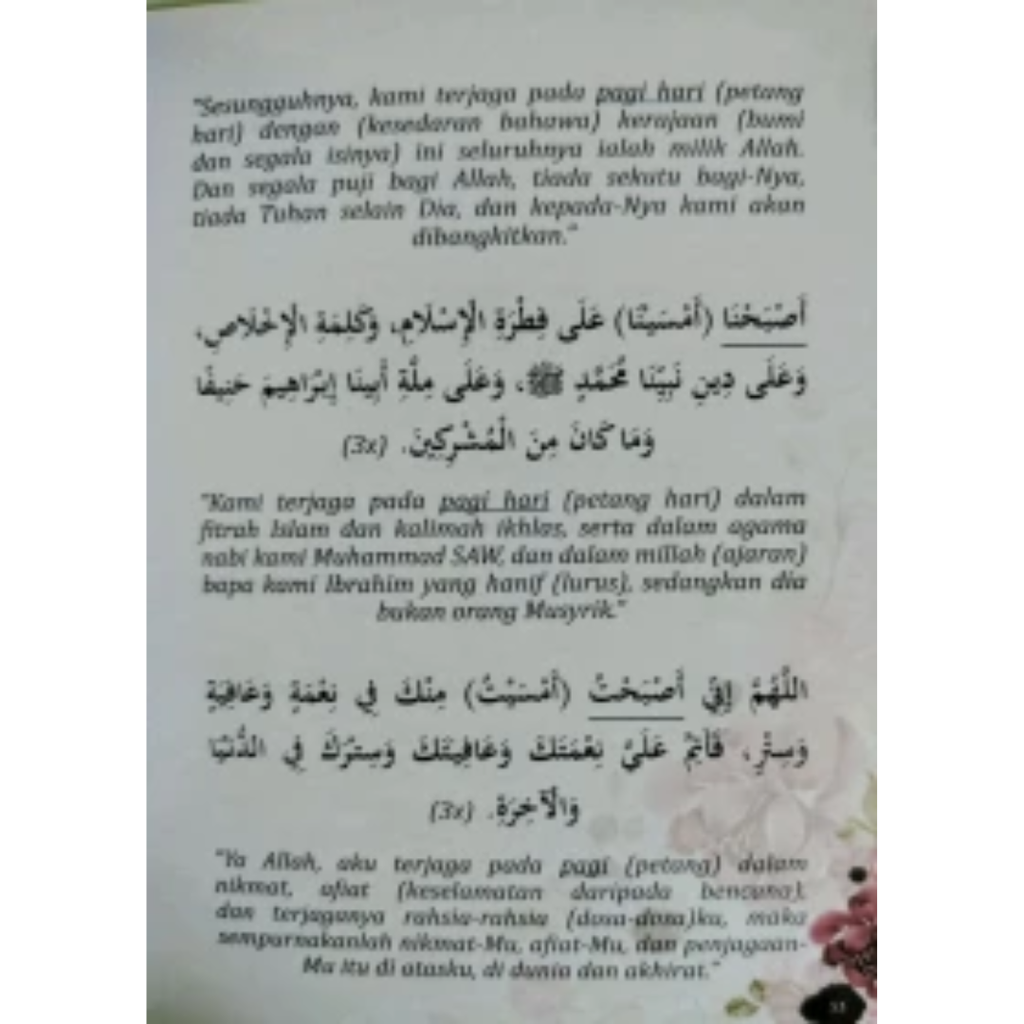 "Sesungguhnya, kami terjaga pada pagi hari (petang
hari) dengan (kesedaran bahawa) kerajaan (bumi
dan segala isinya) ini seluruhnya ialah milik Allah.
Dan segala puji bagi Allah, tiada sekutu bagi-Nya,
tiada Tuhan selain Dia, dan kepada-Nya kami akan
dibangkitkan."
أَصْبَحْنَا (أَمْسَيْنَا) عَلَى فِطْرَةِ الْإِسْلَامِ، وَكَلِمَةِ الْإِخْلَاصِ،
وَعَلَى دِينِ نَبِيِّنَا مُحَمَّدٍ ﷺ، وَعَلَى مِلَّةِ أَبِينَا إِبْرَاهِيمَ حَنِيفًا
وَمَا كَانَ مِنَ الْمُشْرِكِينَ. (3x)
"Kami terjaga pada pagi hari (petang hari) dalam
fitrah Islam dan kalimah ikhlas, serta dalam agama
nabi kami Muhammad SAW, dan dalam millah (ajaran)
bapa kami Ibrahim yang hanif (lurus), sedangkan dia
bukan orang Musyrik."
اللَّهُمَّ إِنِّي أَصْبَحْتُ (أَمْسَيْتُ) مِنْكَ فِي نِعْمَةٍ وَعَافِيَةٍ
وَسِتْرٍ، فَأَتِمَّ عَلَيَّ نِعْمَتَكَ وَعَافِيَتَكَ وَسِتْرَكَ فِي الدُّنْيَا
وَالْآخِرَةِ. (3x)
"Ya Allah, aku terjaga pada pagi (petang) dalam
nikmat, afiat (keselamatan daripada bencana),
dan terjaganya rahsia-rahsia (dosa-dosa)ku, maka
sempurnakanlah nikmat-Mu, afiat-Mu, dan penjagaan-
Mu itu di atasku, di dunia dan akhirat."